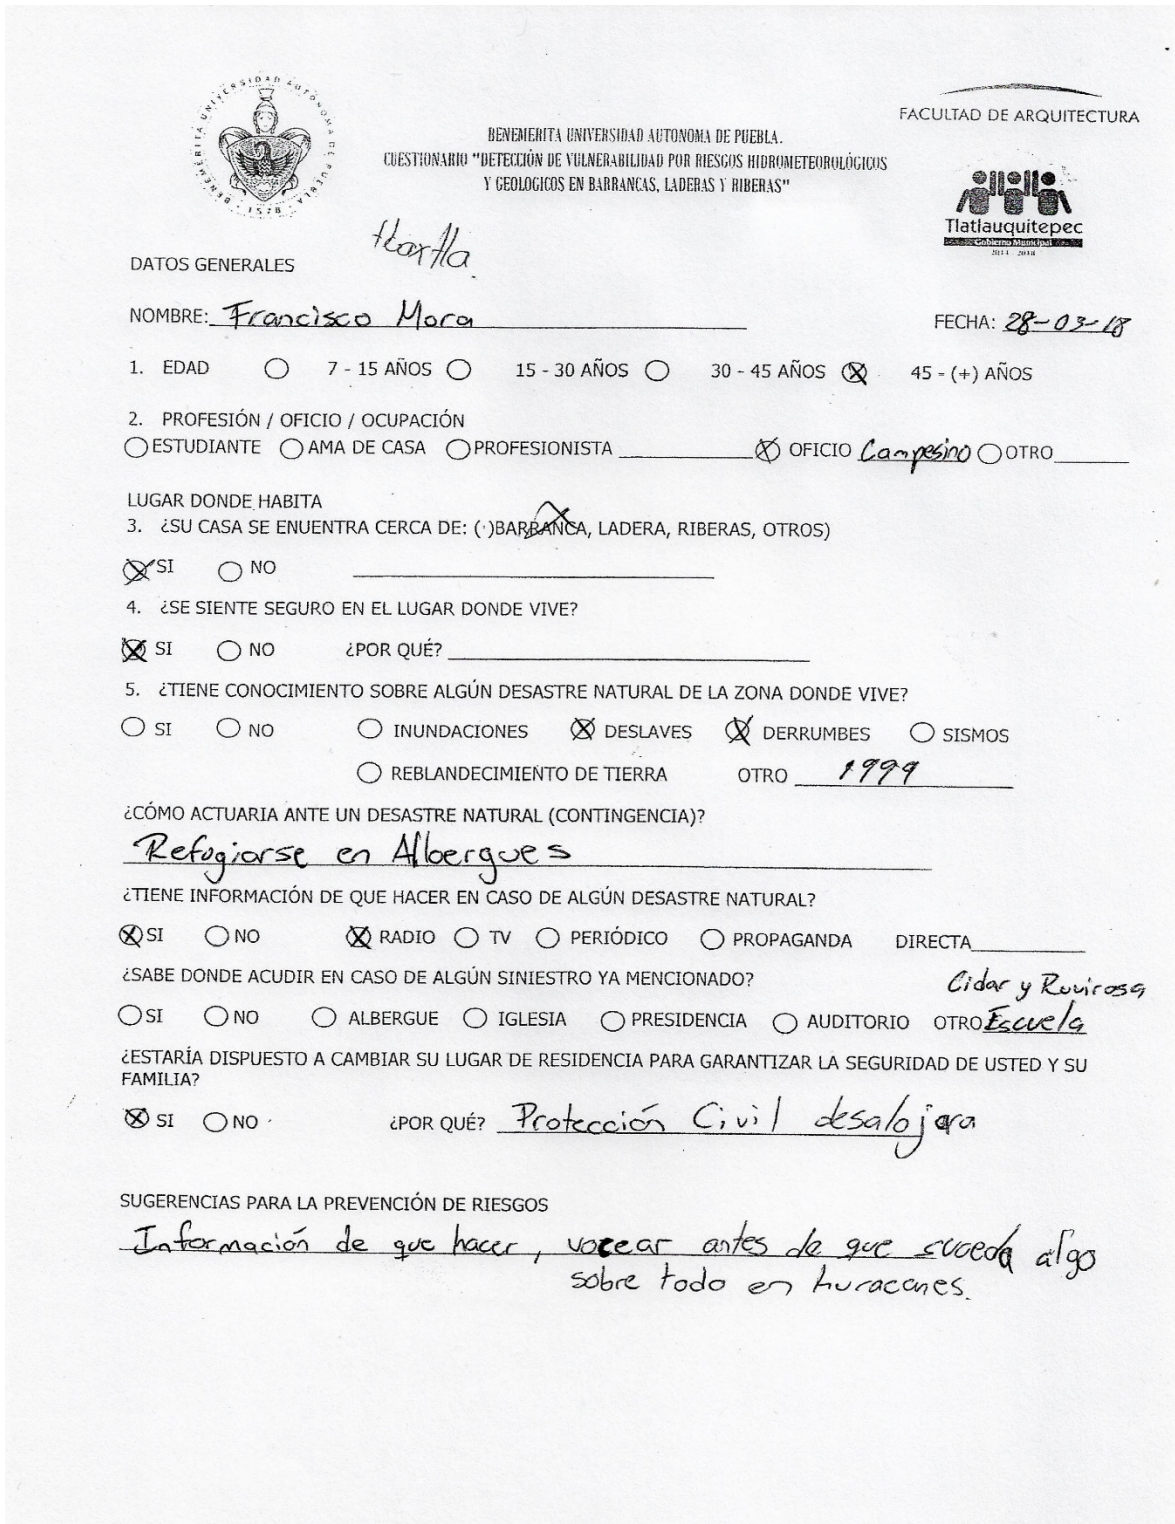 BENEMÉRITA UNIVERSIDAD AUTÓNOMA DE PUEBLA
1578
FACULTAD DE ARQUITECTURA
BENEMERITA UNIVERSIDAD AUTONOMA DE PUEBLA.
CUESTIONARIO "DETECCIÓN DE VULNERABILIDAD POR RIESGOS HIDROMETEOROLÓGICOS
Y GEOLOGICOS EN BARRANCAS, LADERAS Y RIBERAS"
Tlatlauquitepec
Gobierno Municipal
2014 2018
tlaxtla.
DATOS GENERALES
NOMBRE: Francisco Mora FECHA: 28-03-18
1. EDAD 7 - 15 AÑOS 15 - 30 AÑOS 30 - 45 AÑOS 45 - (+) AÑOS
2. PROFESIÓN / OFICIO / OCUPACIÓN
ESTUDIANTE AMA DE CASA PROFESIONISTA OFICIO Campesino OTRO
LUGAR DONDE HABITA
3. ¿SU CASA SE ENUENTRA CERCA DE: ( )BARRANCA, LADERA, RIBERAS, OTROS)
SI NO
4. ¿SE SIENTE SEGURO EN EL LUGAR DONDE VIVE?
SI NO ¿POR QUÉ?
5. ¿TIENE CONOCIMIENTO SOBRE ALGÚN DESASTRE NATURAL DE LA ZONA DONDE VIVE?
SI NO INUNDACIONES DESLAVES DERRUMBES SISMOS
REBLANDECIMIENTO DE TIERRA OTRO 1999
¿CÓMO ACTUARIA ANTE UN DESASTRE NATURAL (CONTINGENCIA)?
Refugiarse en Albergues
¿TIENE INFORMACIÓN DE QUE HACER EN CASO DE ALGÚN DESASTRE NATURAL?
SI NO RADIO TV PERIÓDICO PROPAGANDA DIRECTA
¿SABE DONDE ACUDIR EN CASO DE ALGÚN SINIESTRO YA MENCIONADO?
Cidar y Ruvirosa
SI NO ALBERGUE IGLESIA PRESIDENCIA AUDITORIO OTRO Escuela
¿ESTARÍA DISPUESTO A CAMBIAR SU LUGAR DE RESIDENCIA PARA GARANTIZAR LA SEGURIDAD DE USTED Y SU
FAMILIA?
SI NO ¿POR QUÉ? Protección Civil desalojara
SUGERENCIAS PARA LA PREVENCIÓN DE RIESGOS
Información de que hacer, vocear antes de que suceda algo
sobre todo en huracanes.